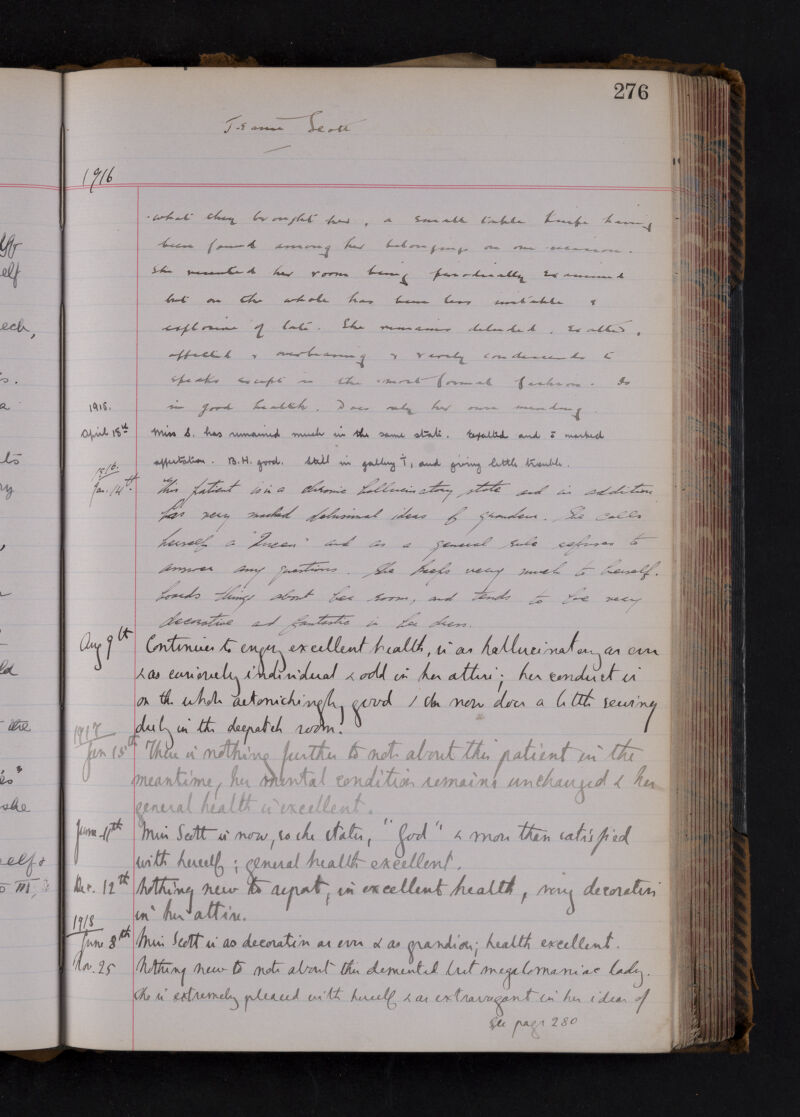 276
Jeanie Scott
1916
what they brought her, a small table knife having
been found among her belongings on one occasion.
She resented her room being periodically examined
but on the whole has been less irritable &
explosive of late. She remains deluded, exalted,
affected & overbearing & rarely condescends to
speak except in the most formal fashion. Is
in good health. Does only her own mending.
1915.
April 15th Miss S. has remained much in the same state. Exalted and c marked
affectation. B.H. good. Still in gallery I, and giving little trouble.
1916.
Jan. 14th. This patient is in a chronic hallucinatory state and in addition
has very marked delusional ideas of grandeur. She calls
herself a "Queen" and as a general rule refuses to
answer any questions. She keeps very much to herself.
hoards things about her room, and tends to be very
decorative and fantastic in her dress.
Aug 9th Continues to enjoy excellent health, is as hallucinatory as ever
& as curiously individual & odd in her attire; her conduct is
on the whole astonishingly good / she now does a little sewing
duly in the despatch room.
1917
Jan 15th There is nothing further to note about this patient in the
meantime, her mental condition remains unchanged & her
general health is excellent.
June 11th Miss Scott is now, so she states, "God" & more than satisfied
with herself; general health excellent.
Dec. 12th Nothing new to report, in excellent health, very decorative
in her attire.
1918
June 8th Miss Scott is as decorative as ever & as grandiose; health excellent.
Nov. 25 Nothing new to note about this demented but megalomaniac lady.
She is extremely pleased with herself & as extravagant in her ideas of
See page 280